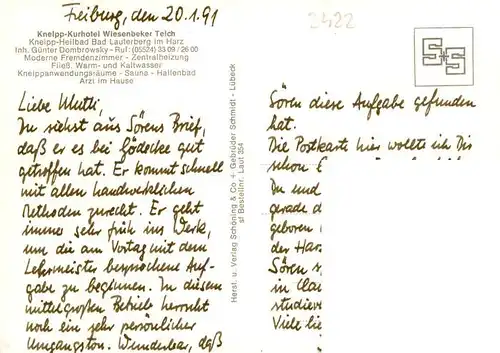 Freiburg, den 20.1.91
2422
Kneipp-Kurhotel Wiesenbeker Teich
Kneipp-Heilbad Bad Lauterberg im Harz
Inh. Günter Dombrowsky - Ruf: (05524) 33 09 / 26 00
Moderne Fremdenzimmer - Zentralheizung
Fließ. Warm- und Kaltwasser
Kneippanwendungsräume - Sauna - Hallenbad
Arzt im Hause
Liebe Mutti,
Du siehst aus Sörens Brief,
daß er es bei Gödecke gut
getroffen hat. Er kommt schnell
mit allen handwerklichen
Methoden zurecht. Er geht
immer sehr früh ins Werk,
um die am Vortag mit dem
Lehrmeister besprochene Auf-
gabe zu beginnen. In diesem
mittelgroßen Betrieb herrscht
noch ein sehr persönlicher
Umgangston. Wunderbar, daß
Herst. u. Verlag Schöning & Co + Gebrüder Schmidt - Lübeck
sf Bestellnr. Laut 354
S+S
Sören diese Aufgabe gefunden
hat.
Die Postkarte hier wollte ich Dir
schon
Du und
gerade d
geboren
der Har
Sören s
in Clau
studiere
Viele lie